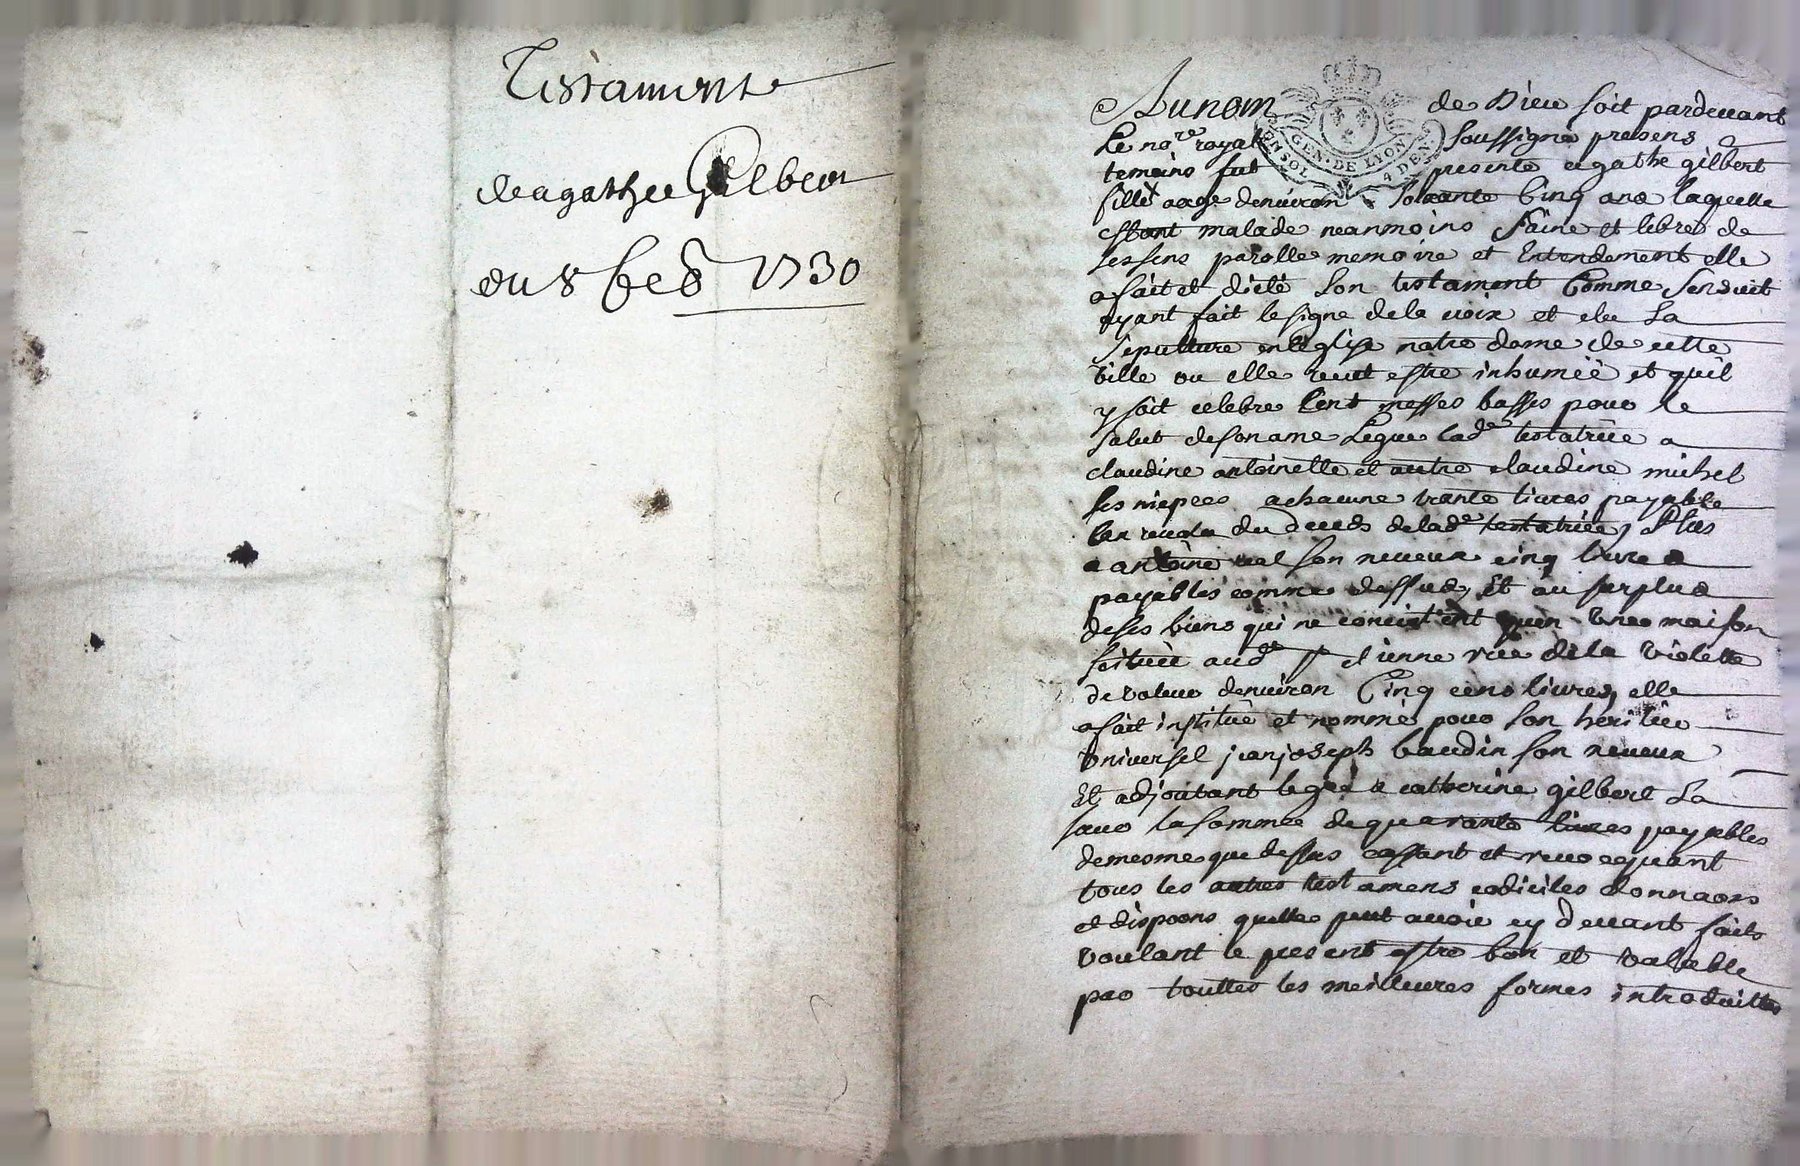 Testament
de agathe Gilbert
du 8 feb 1730
Au nom de Dieu soit pardevant
Le nore royal soussigné presens
temoins fut presente agathe gilbert
fille aage denviron soixante Cinq ans laquelle
estant malade neanmoins saine et libre de
ses sens parolle memoire et Entendement elle
a fait et dicté son testament Comme sensuit
ayant fait le signe de la croix et elu sa
sepulture en leglise notre dame de cette
Ville ou elle veut estre inhumée et quil
y soit celebre Cent messes basses pour le
salut de son ame Legue lade testatrice a
claudine antoinette et autre claudine michel
ses niepces a chacune trante livres payable
lan revolu du deceds de lade testatrice, Plus
a antoine son neveux cinq livres
payables comme dessus, Et au surplus
de ses biens qui ne concistent quen Une maison
scituée audt st etienne rue de la Violette
de valeur denviron Cinq cens livres, elle
a fait institué et nommé pour son heritier
Universel jean joseph baudin son neveux
Et adjoutant legue a catherine gilbert sa
sœur la somme de quarante livres payables
de mesme que dessus cassant et revocquant
tous les autres testamens codiciles donnaons
et dispoons quelle peut avoir cy devant faits
Voulant le present estre bon et valable
par touttes les meilleures formes introduittes
GEN. DE LYON
4 DEN.